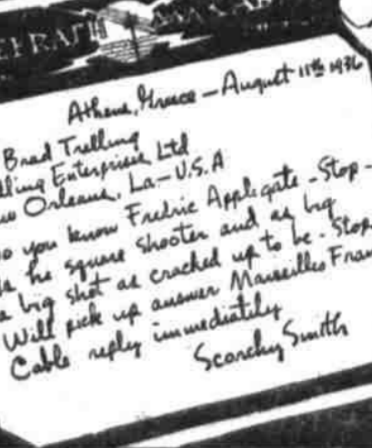 Athens, Greece – August 11th 1936
Brad Trelling
lling Enterprises Ltd
Orleans, La – U.S.A
o you know Fredric Appligate – Stop –
he square shooter and as big
a big shot as cracked up to be – Stop
Will pick up answer Marseilles Fran
Cable reply immediately
Scorchy Smith